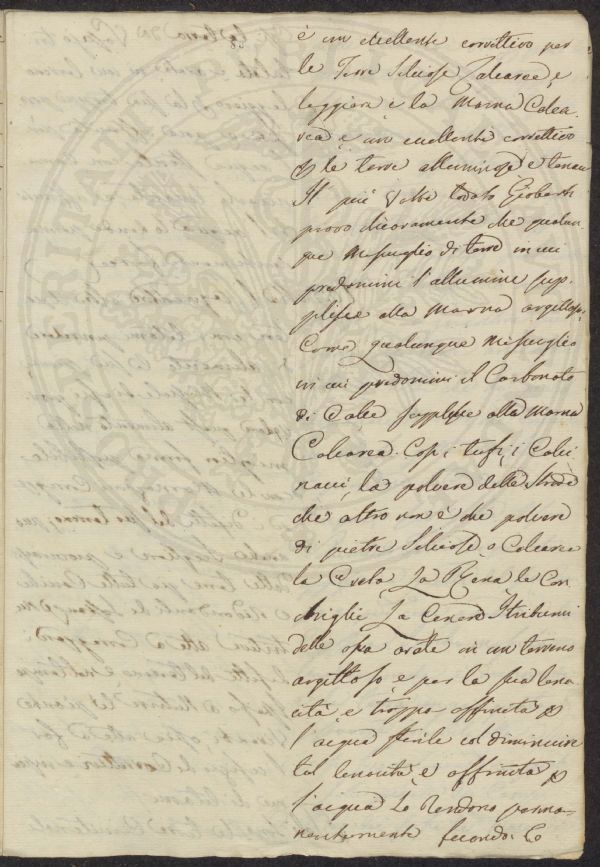 è un eccellente correttivo per
le Terre Siliciose Calcaree, e
leggiera, e la Marna Calca-
rea è un eccellente correttivo
p le terre alluminose, e tenaci
Il più lodato Gioberti
provò che qualun-
que Mescuglio di terre in cui
predomini l'allumine sup-
plisce alla Marna argillosa,
Come Qualunque Mescuglio
in cui predomini il Carbonato
di Calce supplisce alla Marna
Calcarea. Così i tufi, i Calci-
nacci, la polvere delle Strade
che altro non è che polvere
di pietre Siliciose, o Calcaree
la Creta, La Rena, le Con-
chiglie, La Cenere, I
delle ossa in un terreno
argilloso, e per la sua tena-
cità, e troppa affinità p
l'acqua sterile col diminuire
tal tenacità, e affinità p
l'acqua Lo Rendono perma-
nentemente fecondo. E